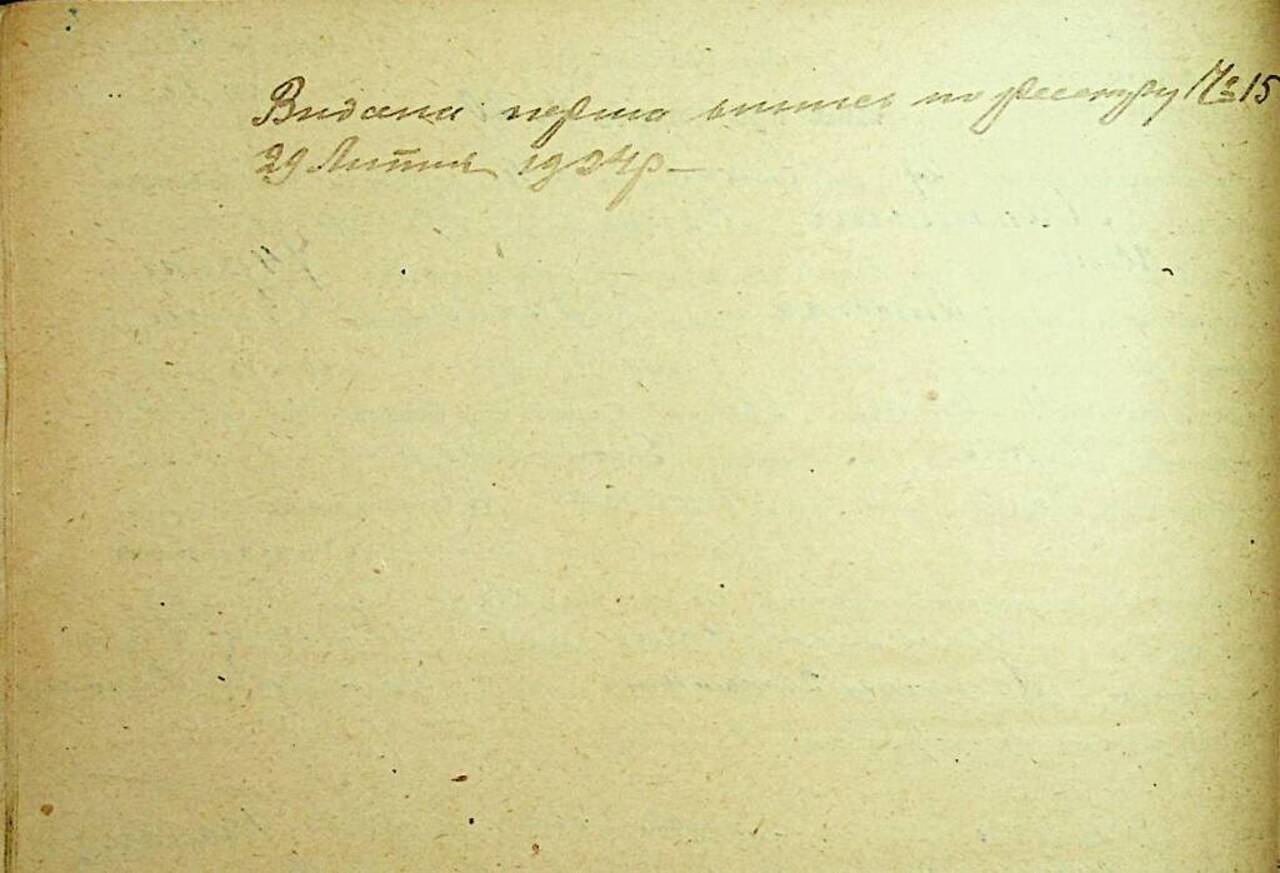 Видана перша випись по реєстру № 15
29 Липня 1924 р –